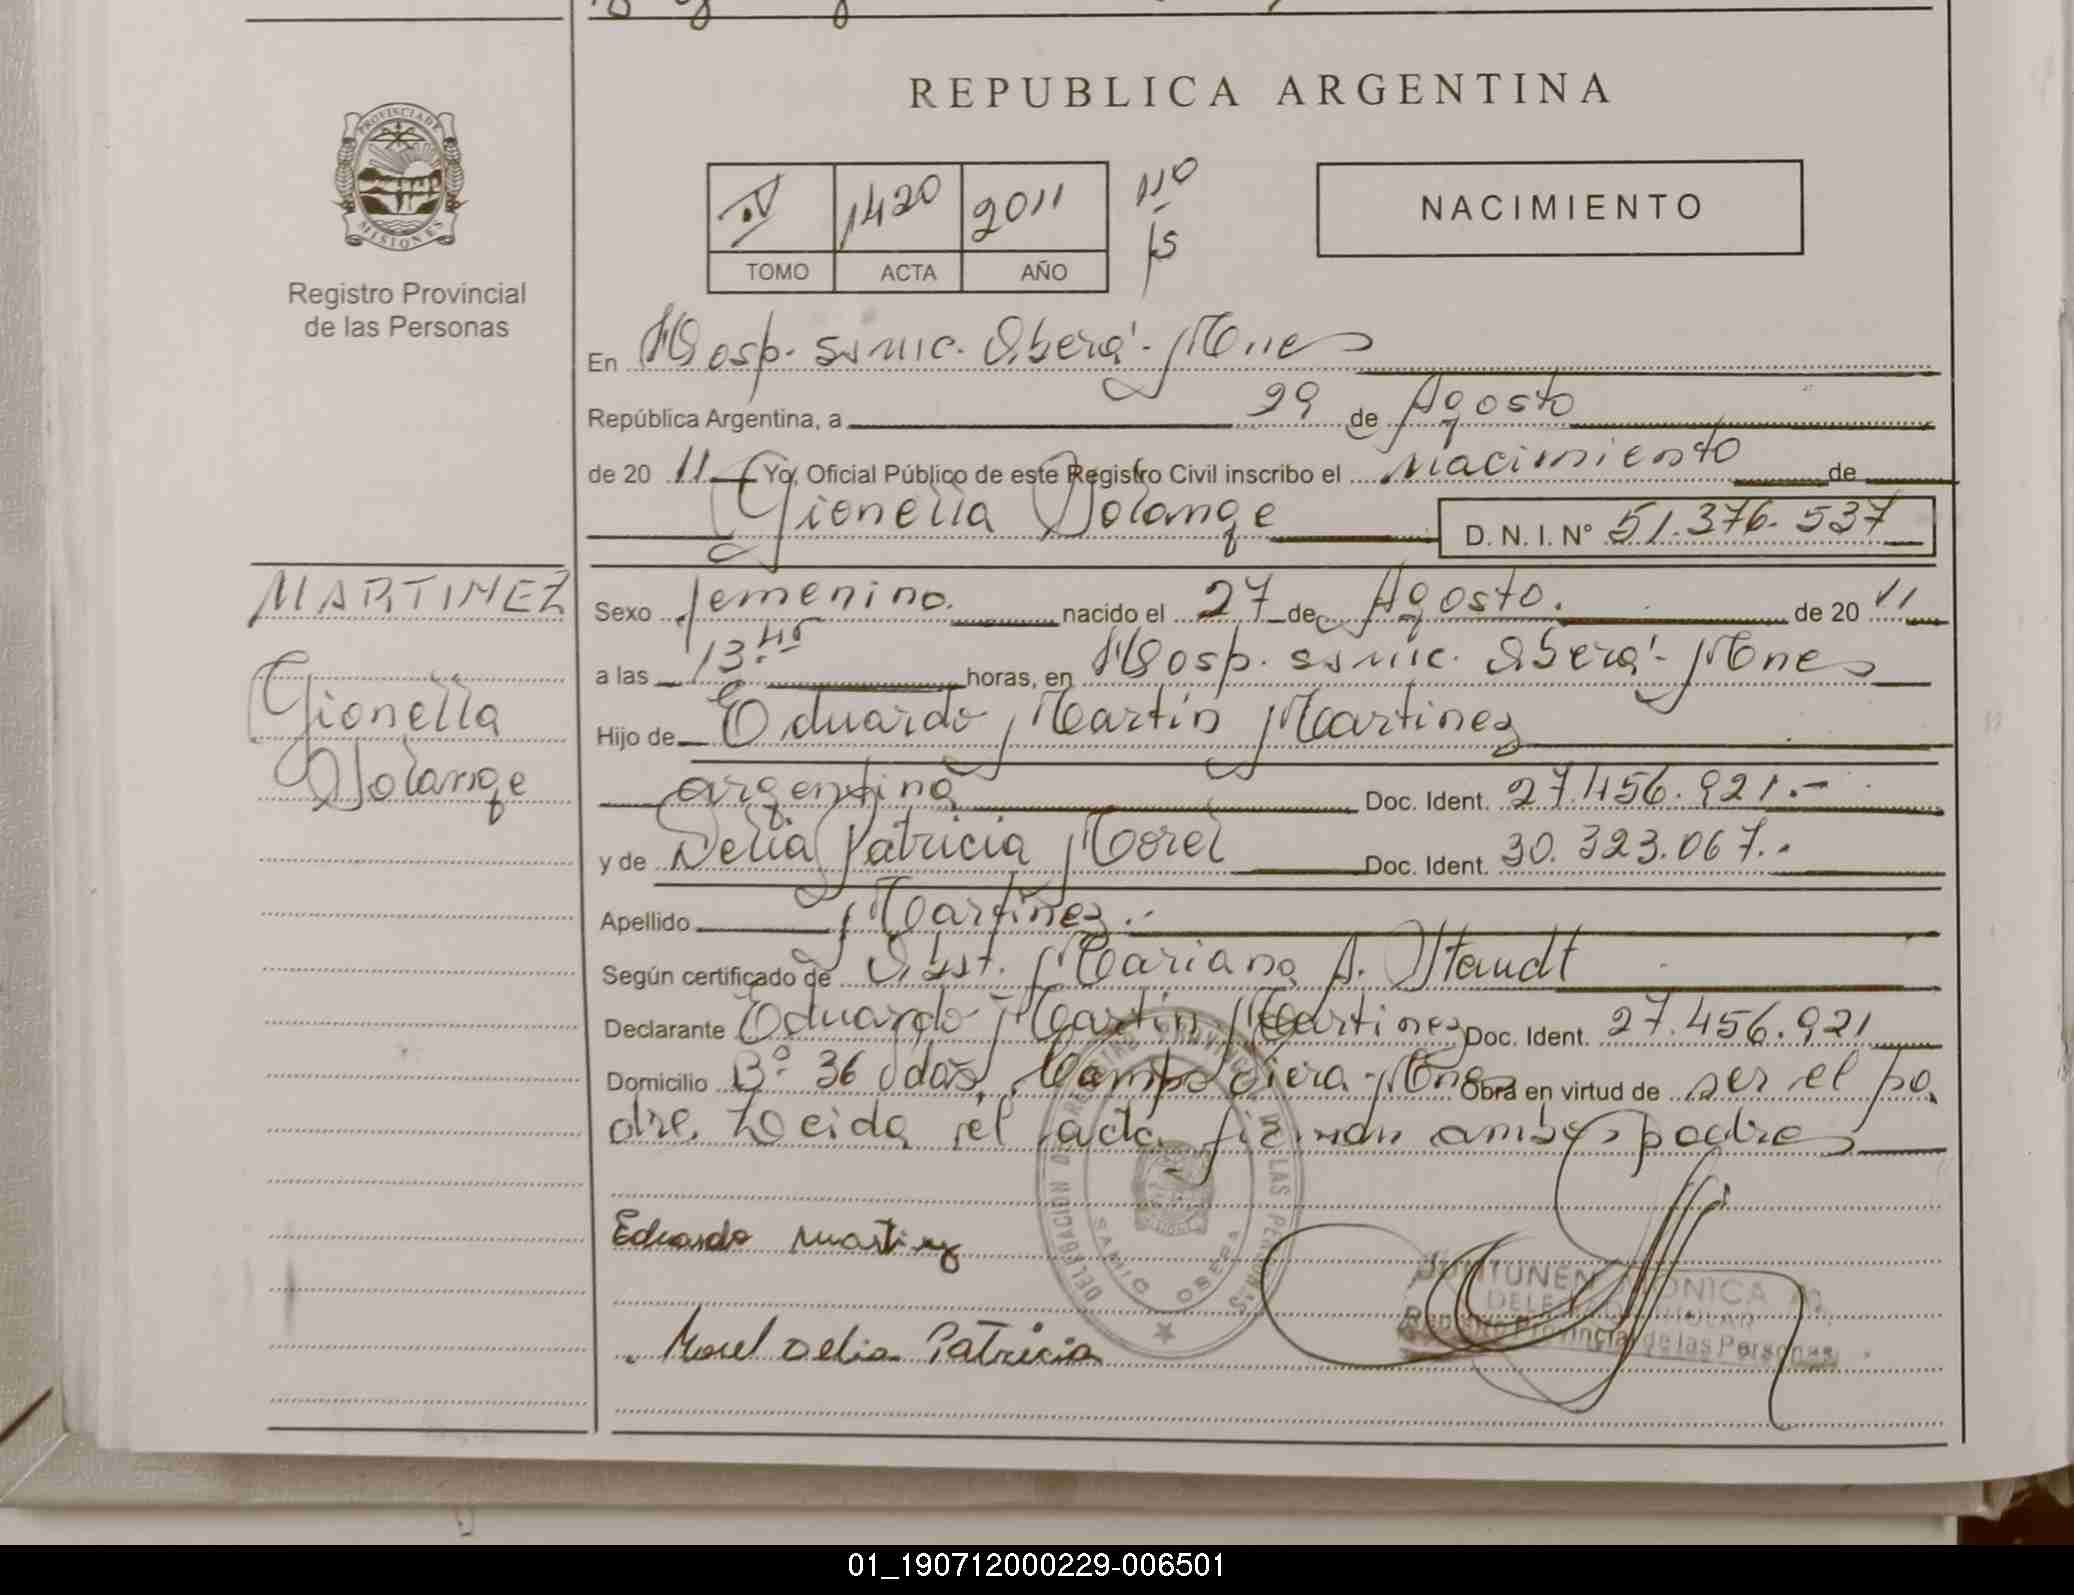 REPUBLICA ARGENTINA
PROVINCIA DE
MISIONES
Registro Provincial
de las Personas
IV 1420 2011 110
TOMO ACTA AÑO 15
NACIMIENTO
En Hosp. ssmic. Oberá - Mnes
República Argentina, a 29 de Agosto
de 20 11 Yo, Oficial Público de este Registro Civil inscribo el Nacimiento de
Gionella Solange D. N. I. N° 51.376.537
MARTINEZ
Gionella
Solange
Sexo femenino. nacido el 27 de Agosto. de 20 11
a las 13.hs horas, en Hosp. ssmic. Oberá - Mnes
Hijo de Eduardo Martin Martinez
argentina Doc. Ident. 27.456.921.-
y de Delia Patricia Morel Doc. Ident. 30.323.067.-
Apellido Martinez.-
Según certificado de Obst. Mariana A. Staudt
Declarante Eduardo Martin Martinez Doc. Ident. 27.456.921
Domicilio B° 36 Vdas, Campo Viera - Mnes Obra en virtud de ser el pa
dre. Leida el acta firman ambos padres
Eduardo Martinez
Morel Delia Patricia
DELEGACION DEL REGISTRO PROVINCIAL DE LAS PERSONAS
SAMIC OBERA
MONICA
Registro Provincial de las Personas
01_190712000229-006501